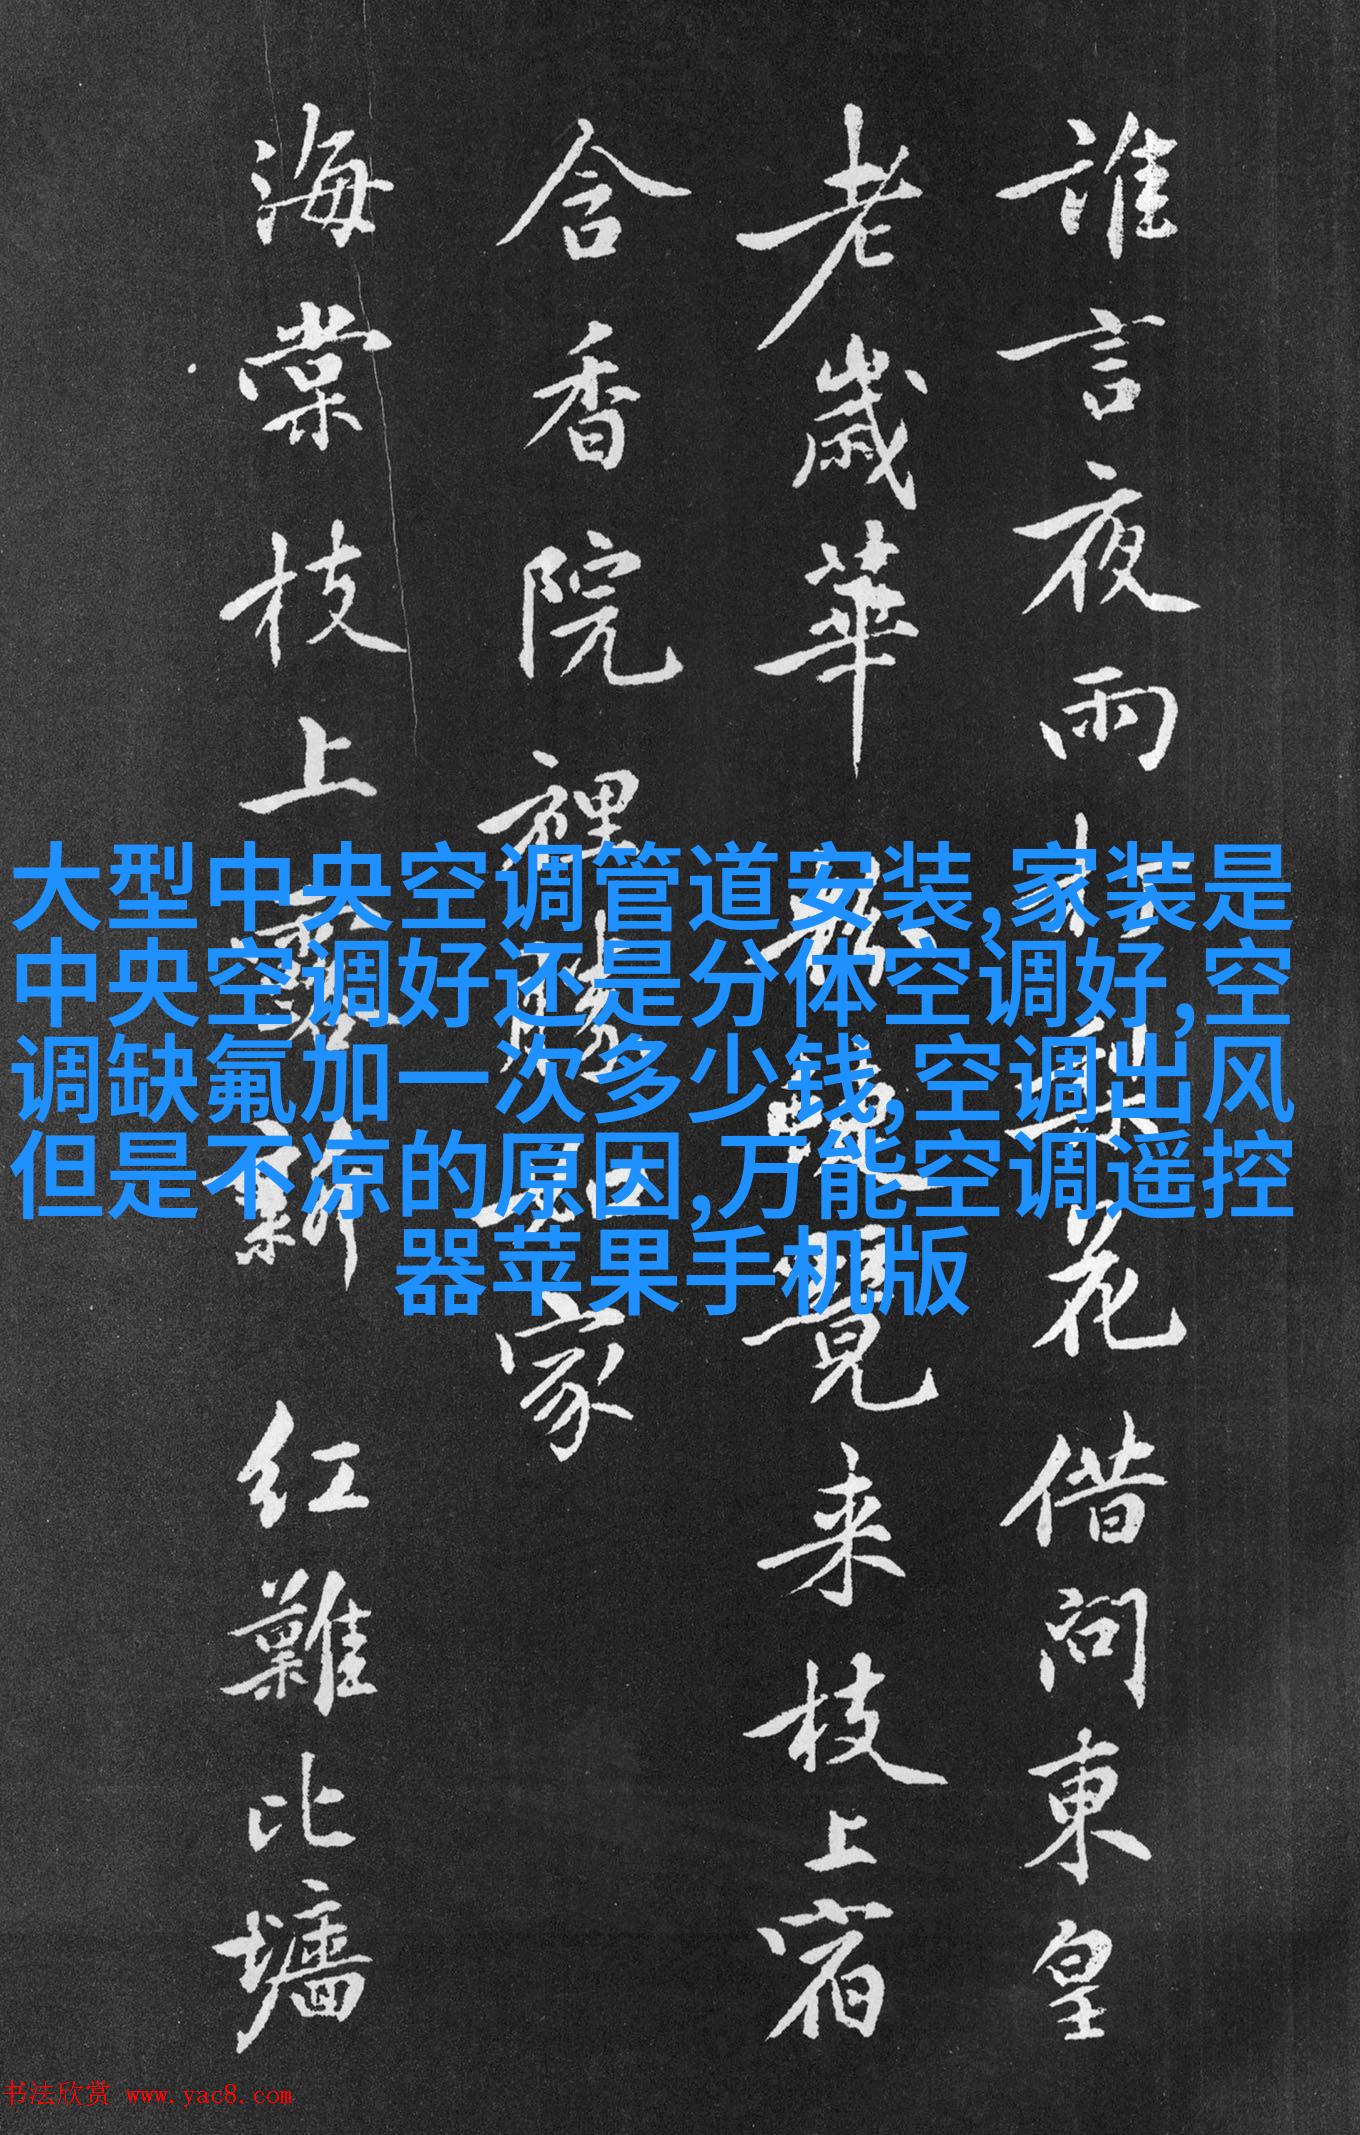 誰言夜雨梨花借問東皇
老歲華曉覺来枝上宿
含香院裡家
海棠枝上露新红難比墻
大型中央空调管道安装,家装是
中央空调好还是分体空调好,空
调缺氟加一次多少钱,空调出风
但是不凉的原因,万能空调遥控
器苹果手机版
书法欣赏 www.yac8.com